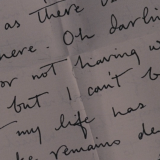 as there
here. Oh darli
or not having
but I can't b
my life has
remains de